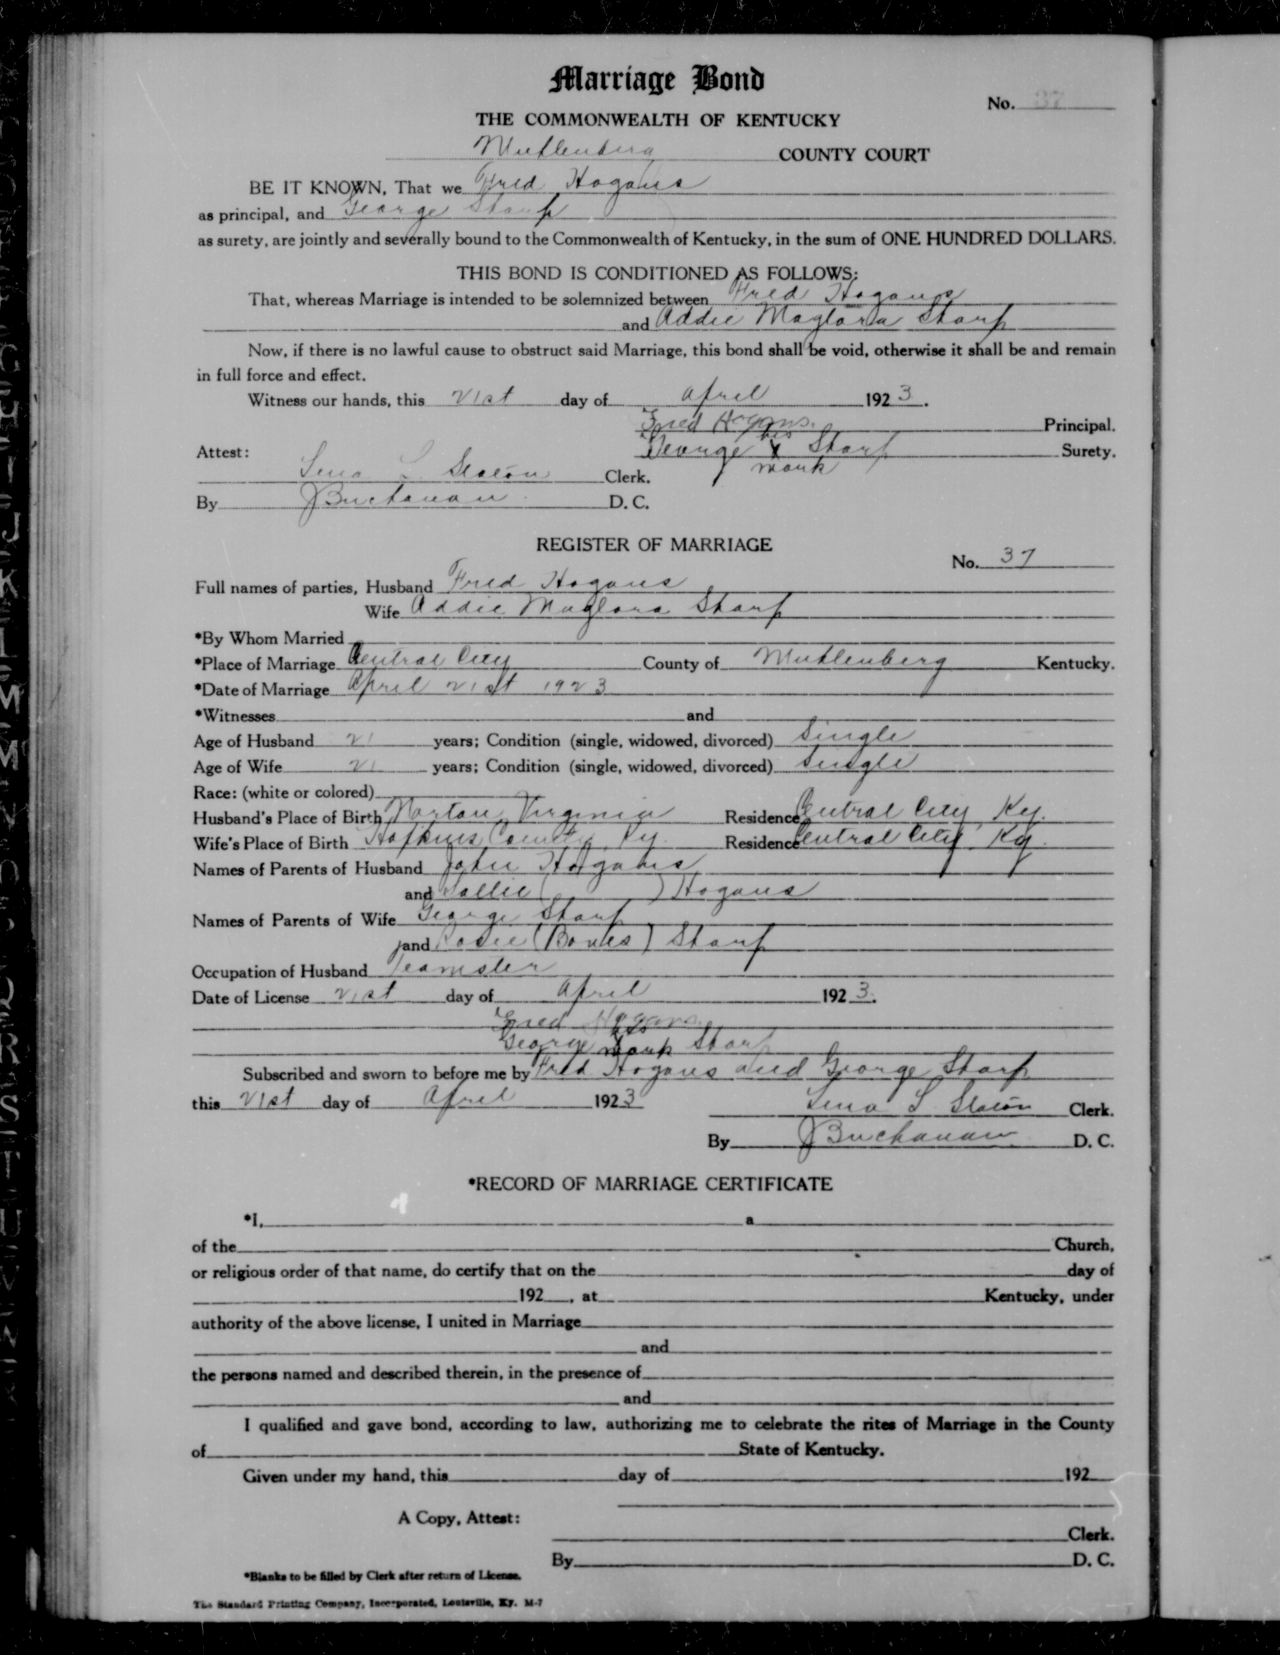 Marriage Bond
No. 37
THE COMMONWEALTH OF KENTUCKY
Muhlenberg COUNTY COURT
BE IT KNOWN, That we Fred Hogans
as principal, and George Sharp
as surety, are jointly and severally bound to the Commonwealth of Kentucky, in the sum of ONE HUNDRED DOLLARS.
THIS BOND IS CONDITIONED AS FOLLOWS:
That, whereas Marriage is intended to be solemnized between Fred Hogans
and Addie Maglora Sharp
Now, if there is no lawful cause to obstruct said Marriage, this bond shall be void, otherwise it shall be and remain
in full force and effect.
Witness our hands, this 21st day of April 1923.
Fred Hogans. Principal.
his
Attest: George X Sharp Surety.
mark
Lena L. Slaton Clerk.
By JBuchanan. D. C.
REGISTER OF MARRIAGE
No. 37
Full names of parties, Husband Fred Hogans
Wife Addie Maglora Sharp
*By Whom Married
*Place of Marriage Central City County of Muhlenberg Kentucky.
*Date of Marriage April 21st 1923
*Witnesses and
Age of Husband 21 years; Condition (single, widowed, divorced) Single
Age of Wife 21 years; Condition (single, widowed, divorced) Single
Race: (white or colored)
Husband's Place of Birth Norton, Virginia Residence Central City Ky.
Wife's Place of Birth Hopkins County, Ky. Residence Central City, Ky.
Names of Parents of Husband John Hogans
and Sallie ( ) Hogans
Names of Parents of Wife George Sharp
and Rosie (Bones) Sharp
Occupation of Husband Teamster
Date of License 21st day of April 1923.
Fred Hogans.
his
George X Sharp
mark
Subscribed and sworn to before me by Fred Hogans and George Sharp
this 21st day of April 1923
Lena L. Slaton Clerk.
By JBuchanan. D. C.
*RECORD OF MARRIAGE CERTIFICATE
*I, a
of the Church,
or religious order of that name, do certify that on the day of
192 , at Kentucky, under
authority of the above license, I united in Marriage
and
the persons named and described therein, in the presence of
and
I qualified and gave bond, according to law, authorizing me to celebrate the rites of Marriage in the County
of State of Kentucky.
Given under my hand, this day of 192
A Copy, Attest:
Clerk.
By D. C.
*Blanks to be filled by Clerk after return of License.
The Standard Printing Company, Incorporated, Louisville, Ky. M-7